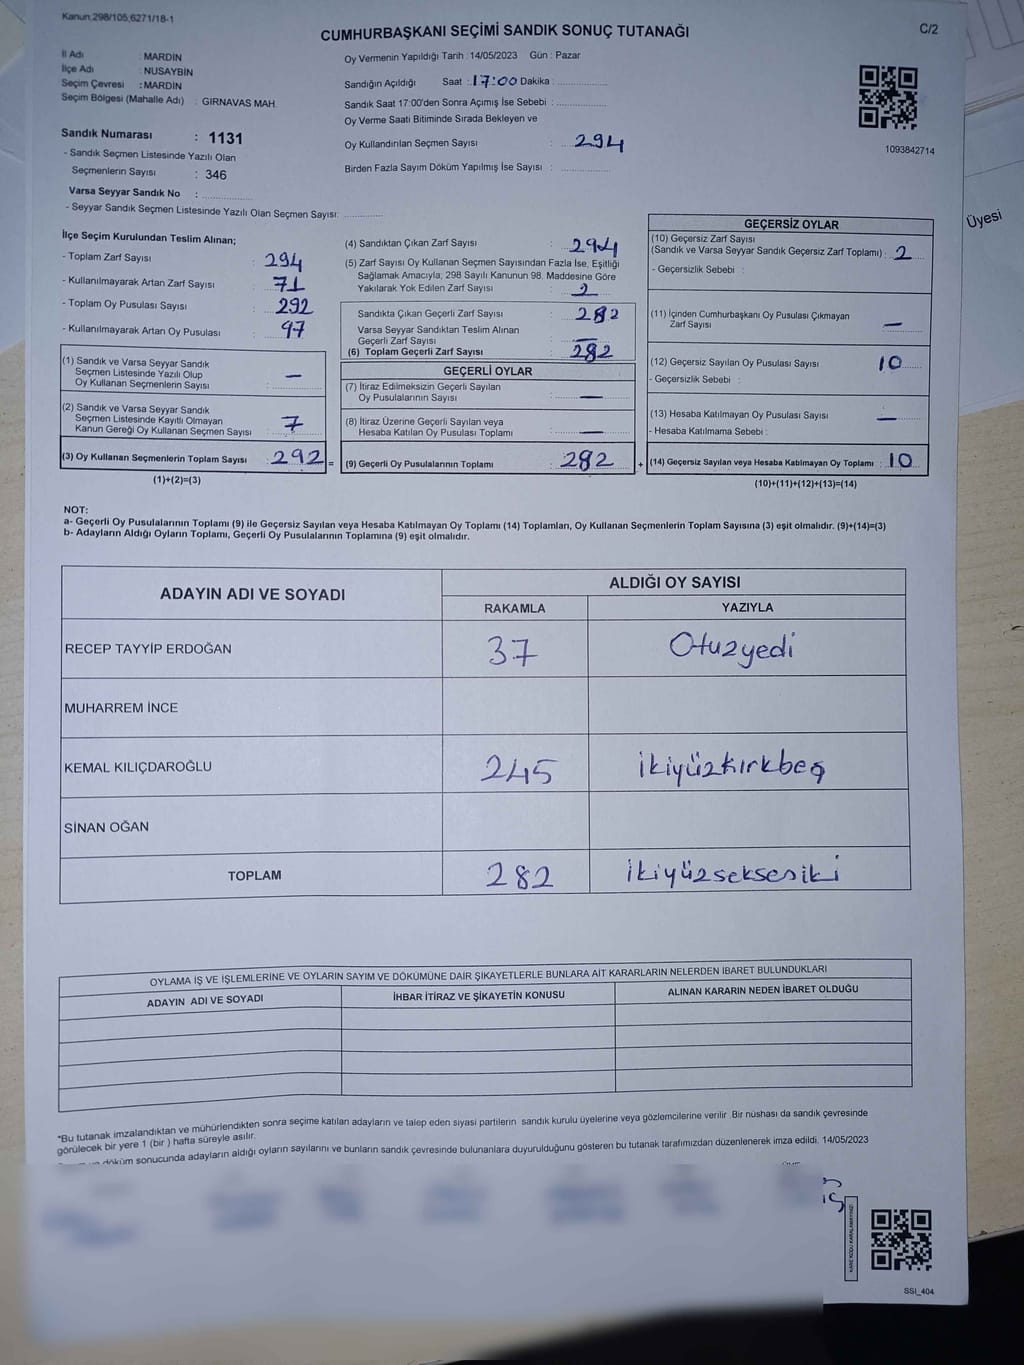 Kanun.298/105,6271/18-1
CUMHURBAŞKANI SEÇİMİ SANDIK SONUÇ TUTANAĞI
C/2
İl Adı : MARDİN
İlçe Adı : NUSAYBİN
Seçim Çevresi : MARDİN
Seçim Bölgesi (Mahalle Adı) : GIRNAVAS MAH.
Sandık Numarası : 1131
- Sandık Seçmen Listesinde Yazılı Olan
Seçmenlerin Sayısı : 346
Varsa Seyyar Sandık No :
- Seyyar Sandık Seçmen Listesinde Yazılı Olan Seçmen Sayısı:
Oy Vermenin Yapıldığı Tarih : 14/05/2023 Gün : Pazar
Sandığın Açıldığı Saat : 17:00 Dakika :
Sandık Saat 17:00'den Sonra Açımış İse Sebebi :
Oy Verme Saati Bitiminde Sırada Bekleyen ve
Oy Kullandırılan Seçmen Sayısı : 294
Birden Fazla Sayım Döküm Yapılmış İse Sayısı :
1093842714
Üyesi
İlçe Seçim Kurulundan Teslim Alınan;
- Toplam Zarf Sayısı : 294
- Kullanılmayarak Artan Zarf Sayısı : 71
- Toplam Oy Pusulası Sayısı : 292
- Kullanılmayarak Artan Oy Pusulası : 97
(1) Sandık ve Varsa Seyyar Sandık
Seçmen Listesinde Yazılı Olup
Oy Kullanan Seçmenlerin Sayısı : —
(2) Sandık ve Varsa Seyyar Sandık
Seçmen Listesinde Kayıtlı Olmayan
Kanun Gereği Oy Kullanan Seçmen Sayısı : 7
(3) Oy Kullanan Seçmenlerin Toplam Sayısı : 292 =
(1)+(2)=(3)
(4) Sandıktan Çıkan Zarf Sayısı : 294
(5) Zarf Sayısı Oy Kullanan Seçmen Sayısından Fazla İse, Eşitliği
Sağlamak Amacıyla; 298 Sayılı Kanunun 98. Maddesine Göre
Yakılarak Yok Edilen Zarf Sayısı : 2
Sandıkta Çıkan Geçerli Zarf Sayısı : 282
Varsa Seyyar Sandıktan Teslim Alınan
Geçerli Zarf Sayısı : —
(6) Toplam Geçerli Zarf Sayısı : 282
GEÇERLİ OYLAR
(7) İtiraz Edilmeksizin Geçerli Sayılan
Oy Pusulalarının Sayısı : —
(8) İtiraz Üzerine Geçerli Sayılan veya
Hesaba Katılan Oy Pusulası Toplamı : —
(9) Geçerli Oy Pusulalarının Toplamı : 282 +
GEÇERSİZ OYLAR
(10) Geçersiz Zarf Sayısı
(Sandık ve Varsa Seyyar Sandık Geçersiz Zarf Toplamı) : 2
- Geçersizlik Sebebi :
(11) İçinden Cumhurbaşkanı Oy Pusulası Çıkmayan
Zarf Sayısı : —
(12) Geçersiz Sayılan Oy Pusulası Sayısı : 10
- Geçersizlik Sebebi :
(13) Hesaba Katılmayan Oy Pusulası Sayısı : —
- Hesaba Katılmama Sebebi :
(14) Geçersiz Sayılan veya Hesaba Katılmayan Oy Toplamı : 10
(10)+(11)+(12)+(13)=(14)
NOT:
a- Geçerli Oy Pusulalarının Toplamı (9) ile Geçersiz Sayılan veya Hesaba Katılmayan Oy Toplamı (14) Toplamları, Oy Kullanan Seçmenlerin Toplam Sayısına (3) eşit olmalıdır. (9)+(14)=(3)
b- Adayların Aldığı Oyların Toplamı, Geçerli Oy Pusulalarının Toplamına (9) eşit olmalıdır.
ADAYIN ADI VE SOYADI
ALDIĞI OY SAYISI
RAKAMLA YAZIYLA
RECEP TAYYİP ERDOĞAN 37 Otuzyedi
MUHARREM İNCE
KEMAL KILIÇDAROĞLU 245 İkiyüzkırkbeş
SİNAN OĞAN
TOPLAM 282 ikiyüzsekseniki
OYLAMA İŞ VE İŞLEMLERİNE VE OYLARIN SAYIM VE DÖKÜMÜNE DAİR ŞİKAYETLERLE BUNLARA AİT KARARLARIN NELERDEN İBARET BULUNDUKLARI
ADAYIN ADI VE SOYADI İHBAR İTİRAZ VE ŞİKAYETİN KONUSU ALINAN KARARIN NEDEN İBARET OLDUĞU
*Bu tutanak imzalandıktan ve mühürlendikten sonra seçime katılan adayların ve talep eden siyasi partilerin sandık kurulu üyelerine veya gözlemcilerine verilir. Bir nüshası da sandık çevresinde
görülecek bir yere 1 (bir ) hafta süreyle asılır.
döküm sonucunda adayların aldığı oyların sayılarını ve bunların sandık çevresinde bulunanlara duyurulduğunu gösteren bu tutanak tarafımızdan düzenlenerek imza edildi. 14/05/2023
KARE KODU KARALAMAYINIZ
SSI_404